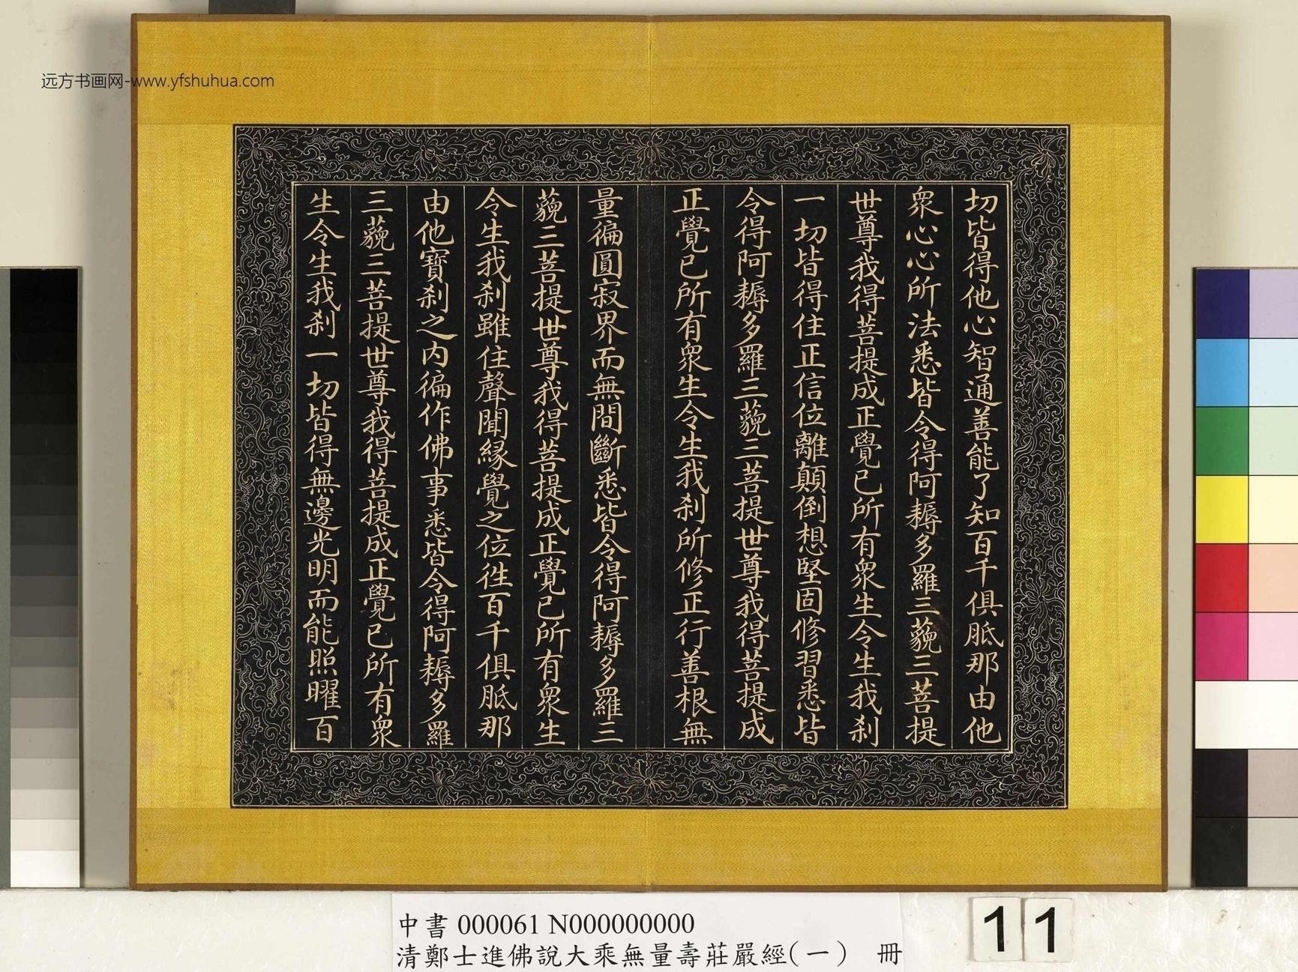 远方书画网-www.yfshuhua.com
切皆得他心智通善能了知百千俱胝那由他
衆心心所法悉皆令得阿耨多羅三藐三菩提
世尊我得菩提成正覺已所有衆生令生我刹
一切皆得住正信位離顛倒想堅固修習悉皆
令得阿耨多羅三藐三菩提世尊我得菩提成
正覺已所有衆生令生我刹所修正行善根無
量徧圓寂界而無間斷悉皆令得阿耨多羅三
藐三菩提世尊我得菩提成正覺已所有衆生
令生我刹雖住聲聞緣覺之位徃百千俱胝那
由他寶刹之内徧作佛事悉皆令得阿耨多羅
三藐三菩提世尊我得菩提成正覺已所有衆
生令生我刹一切皆得無邊光明而能照曜百
中書 000061 N000000000
清鄭士進佛說大乘無量壽莊嚴經(一) 冊
11